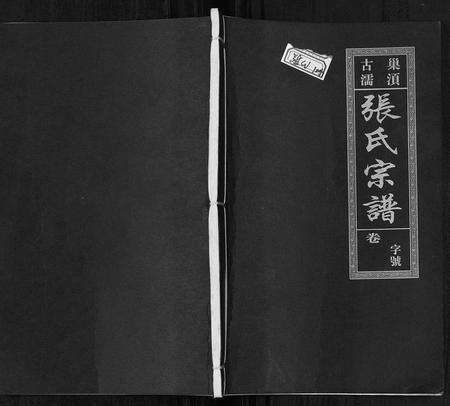 巢湏
古濡
張氏宗譜
卷
字號